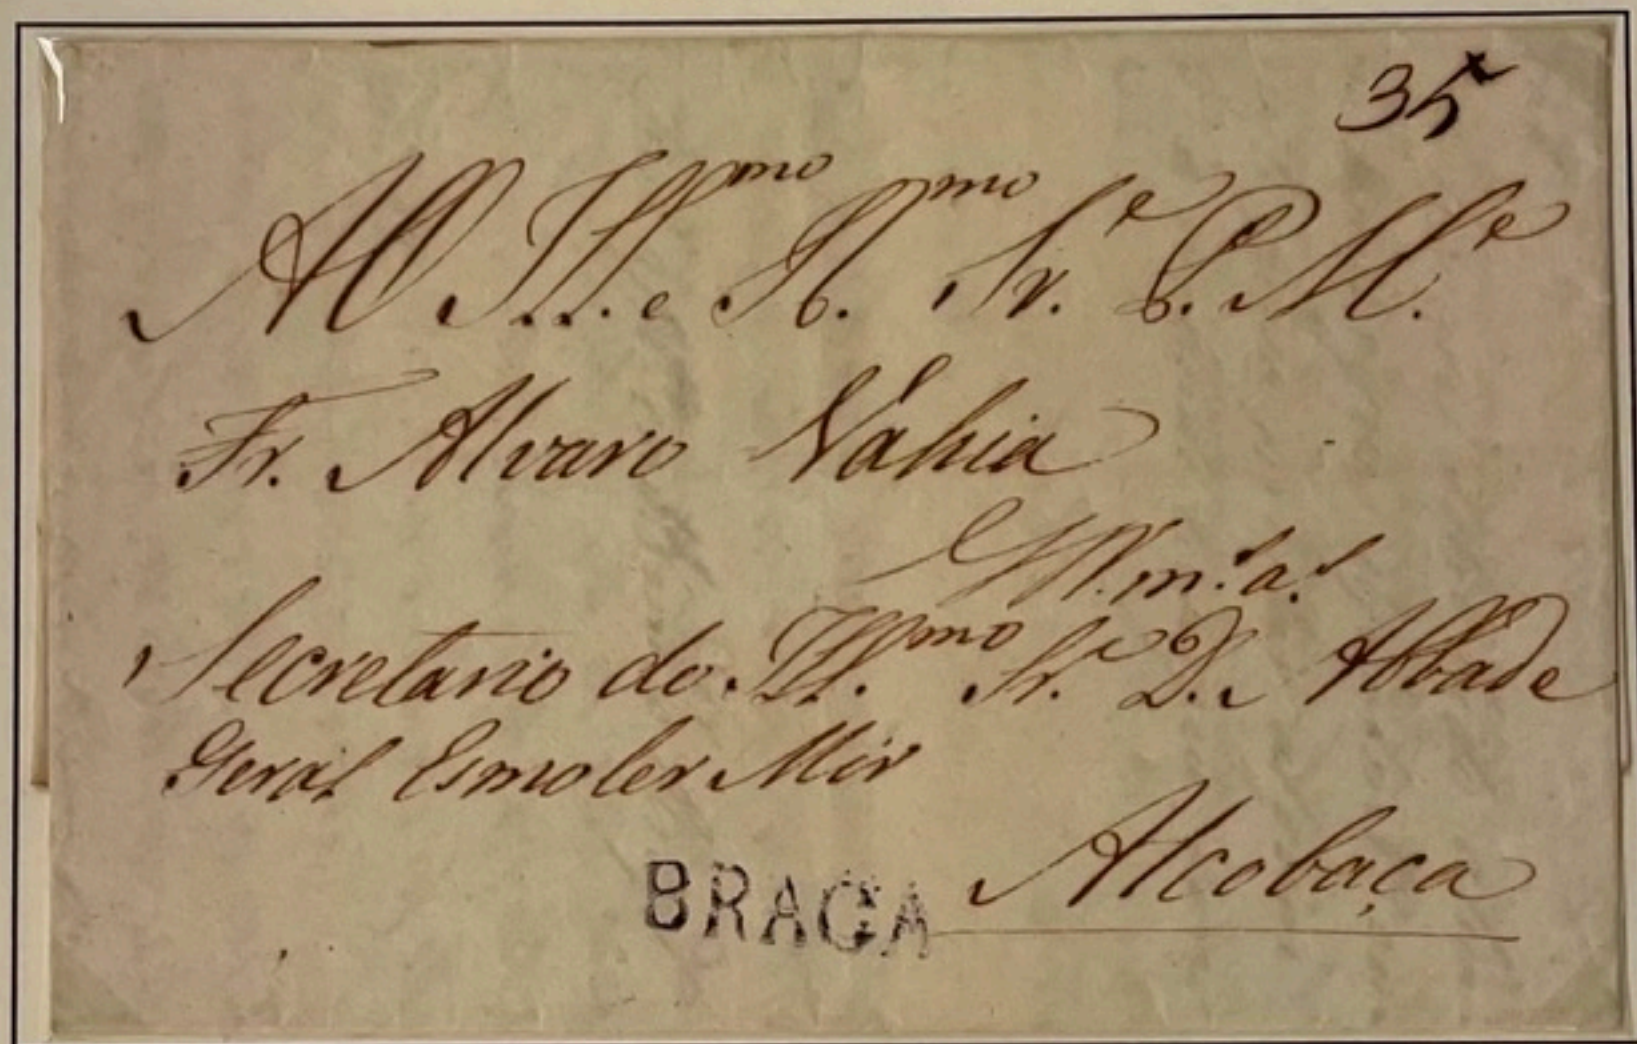 35
Ao Ill.mo e R.mo Sr.e P. M.e
Fr. Alvaro Vahia
m.s a.s
Secretario do Ill.mo Sr.e D. Abbade
Geral Esmoler Mór
BRAGA Alcobaça